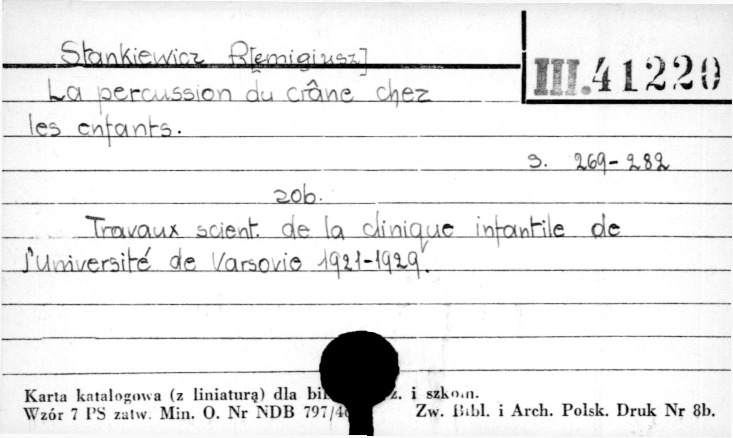 Stankiewicz R[emigiusz]
III.41220
La percussion du crâne chez
les enfants.
s. 269-282
zob.
Travaux scient. de la clinique infantile de
l'Université de Varsovie 1921-1929.
Karta katalogowa (z liniaturą) dla i szkoln.
Wzór 7 PS zatw. Min. O. Nr NDB Zw. Bibl. i Arch. Polsk. Druk Nr 8b.